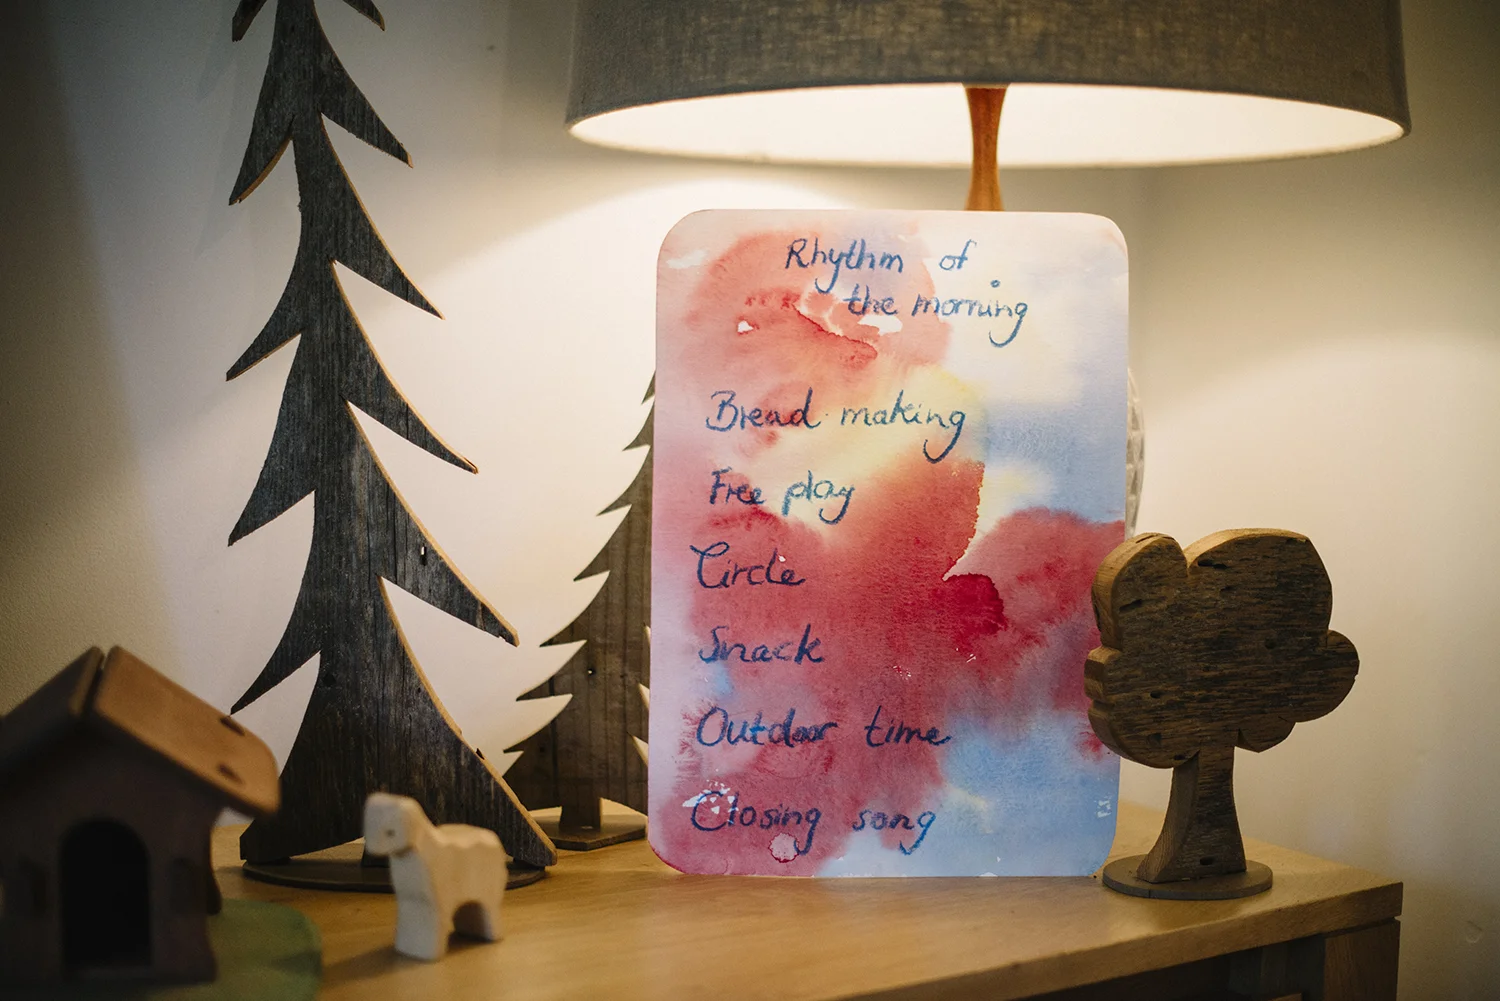 Rhythm of
the morning
Bread making
Free play
Circle
Snack
Outdoor time
Closing song